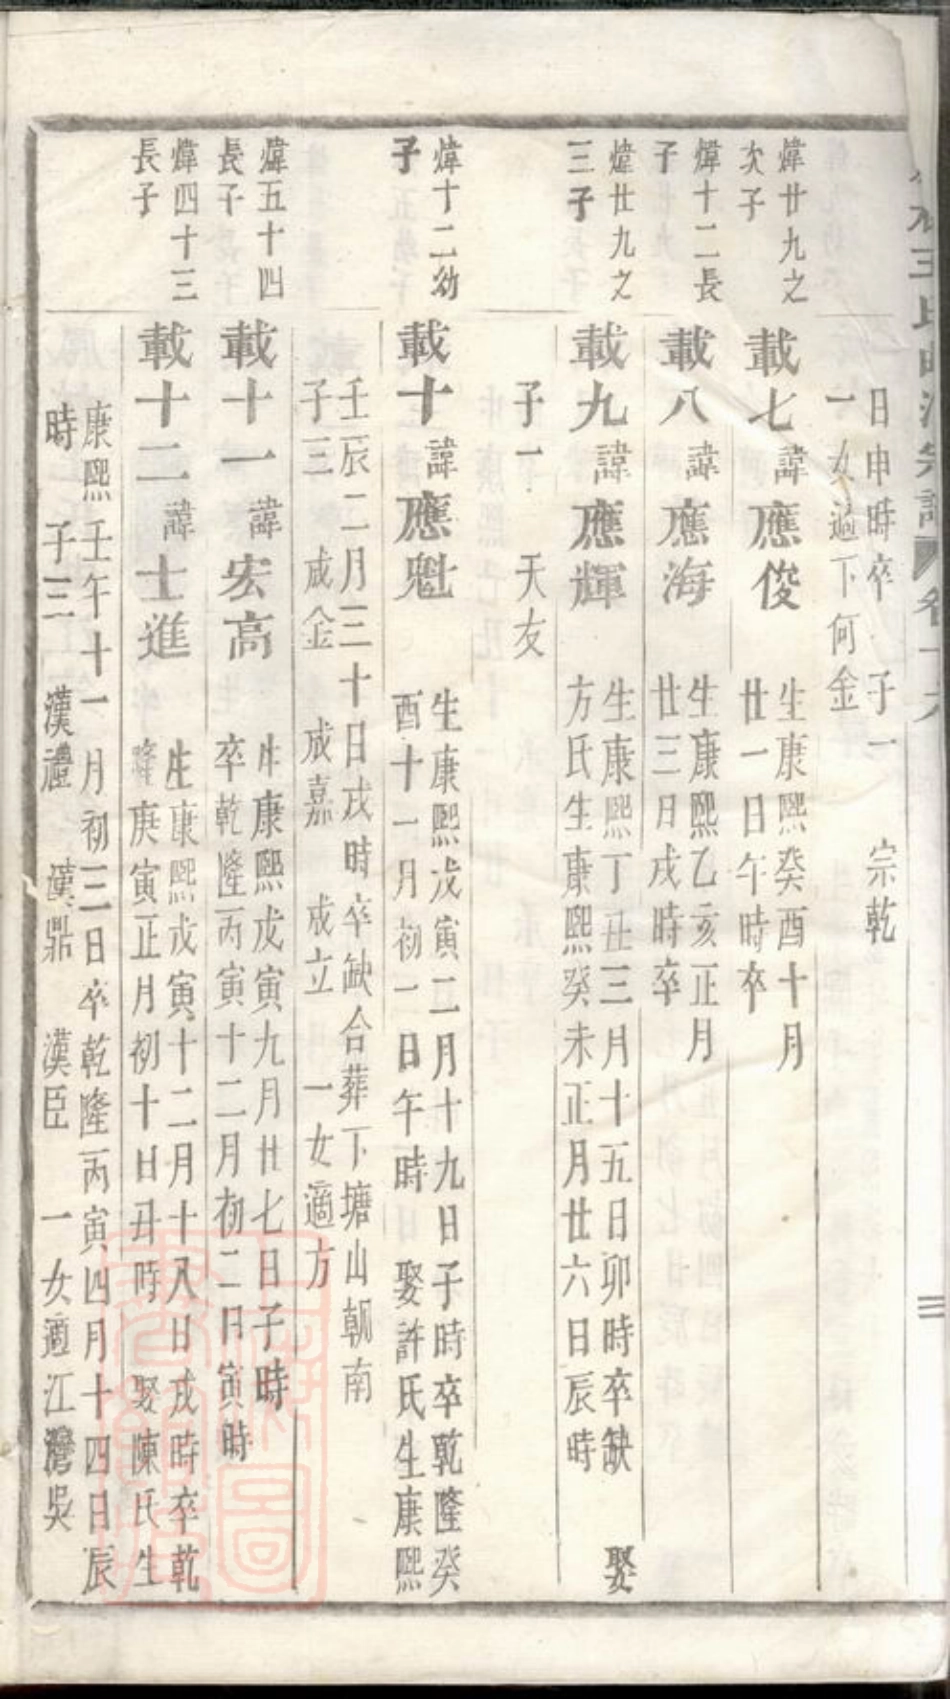 日申時卒　子一　宗乾
一女適下何金
煒廿九之
次子
載七諱應俊
生康熙癸酉十月
廿一日午時卒
煒十二長
子
載八諱應海
生康熙乙亥正月
廿三日戌時卒
煒廿九之
三子
載九諱應輝
生康熙丁丑三月十五日卯時卒缺　娶
方氏生康熙癸未正月廿六日辰時
子一　天友
煒十二幼
子
載十諱應魁
生康熙戊寅二月十九日子時卒乾隆癸
酉十一月初二日午時　娶許氏生康熙
壬辰二月三十日戌時卒缺合葬下塘山朝南
子三　成金　成嘉　成立　一女適方
煒五十四
長子
載十一諱宏高
生康熙戊寅九月廿七日子時
卒乾隆丙寅十二月初二日寅時
煒四十三
長子
載十二諱士進
生康熙戊寅十二月十八日戌時卒乾
隆庚寅正月初十日丑時　娶陳氏生
康熙壬午十一月初三日卒乾隆丙寅四月十四日辰
時　子三　漢禮　漢鼎　漢臣　一女適江灣吳